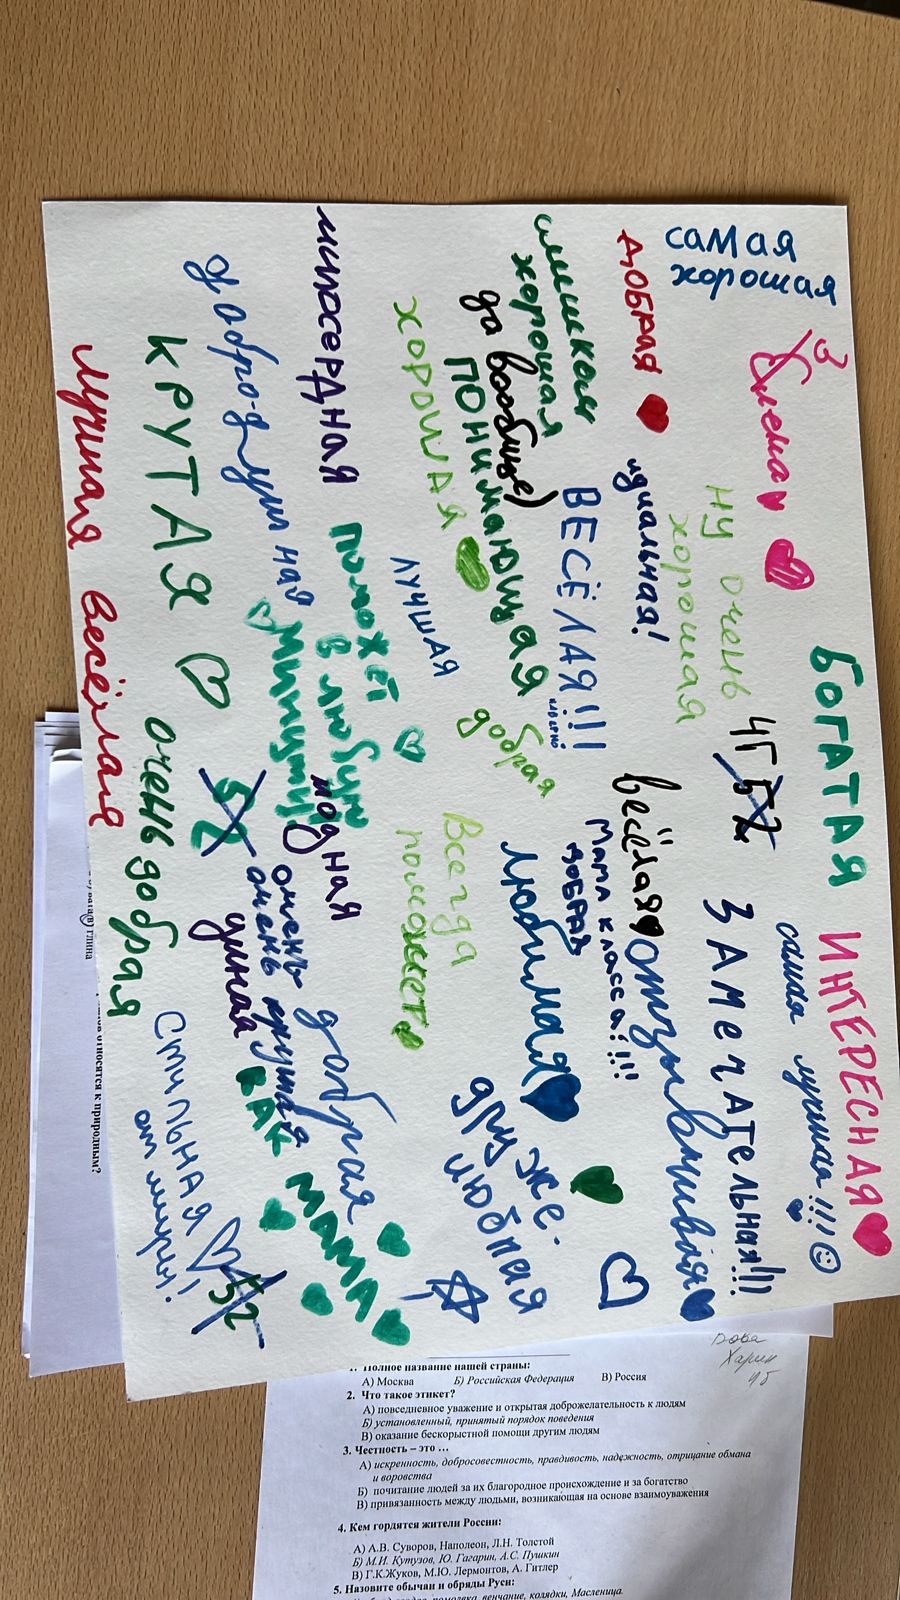 самая
хорошая
БОГАТАЯ
ИНТЕРЕСНАЯ
самая лучшая!!!
ну очень
хорошая
4Г
52
ЗАМЕЧАТЕЛЬНАЯ!!!
ДОБРАЯ
идиальная!
весёлая
отзывчивая
хорошая
да вообще)
ВЕСЁЛАЯ!!!
Мама класса!!!!
ДОБРАЯ
ПОНИМающая
добрая
любимая
ХОРОШАЯ
ЛУЧШАЯ
Всегда
поможет
друже-
любная
милосердная
поможет
в любую
минуту
модная
добродушная
очень добрая
очень крутая
умная
КАК МАМА
КРУТАЯ
52
очень добрая
СТИЛЬНАЯ!!
52
лучшая весёлая
Вова
Харин
4Б
1. Полное название нашей страны:
А) Москва Б) Российская Федерация В) Россия
2. Что такое этикет?
А) повседневное уважение и открытая доброжелательность к людям
Б) установленный, принятый порядок поведения
В) оказание бескорыстной помощи другим людям
3. Честность – это …
А) искренность, добросовестность, правдивость, надежность, отрицание обмана
и воровства
Б) почитание людей за их благородное происхождение и за богатство
В) привязанность между людьми, возникающая на основе взаимоуважения
4. Кем гордятся жители России:
А) А.В. Суворов, Наполеон, Л.Н. Толстой
Б) М.И. Кутузов, Ю. Гагарин, А.С. Пушкин
В) Г.К.Жуков, М.Ю. Лермонтов, А. Гитлер
5. Назовите обычаи и обряды Руси:
помолвка, венчание, колядки, Масленица.
глина
относятся к природным?